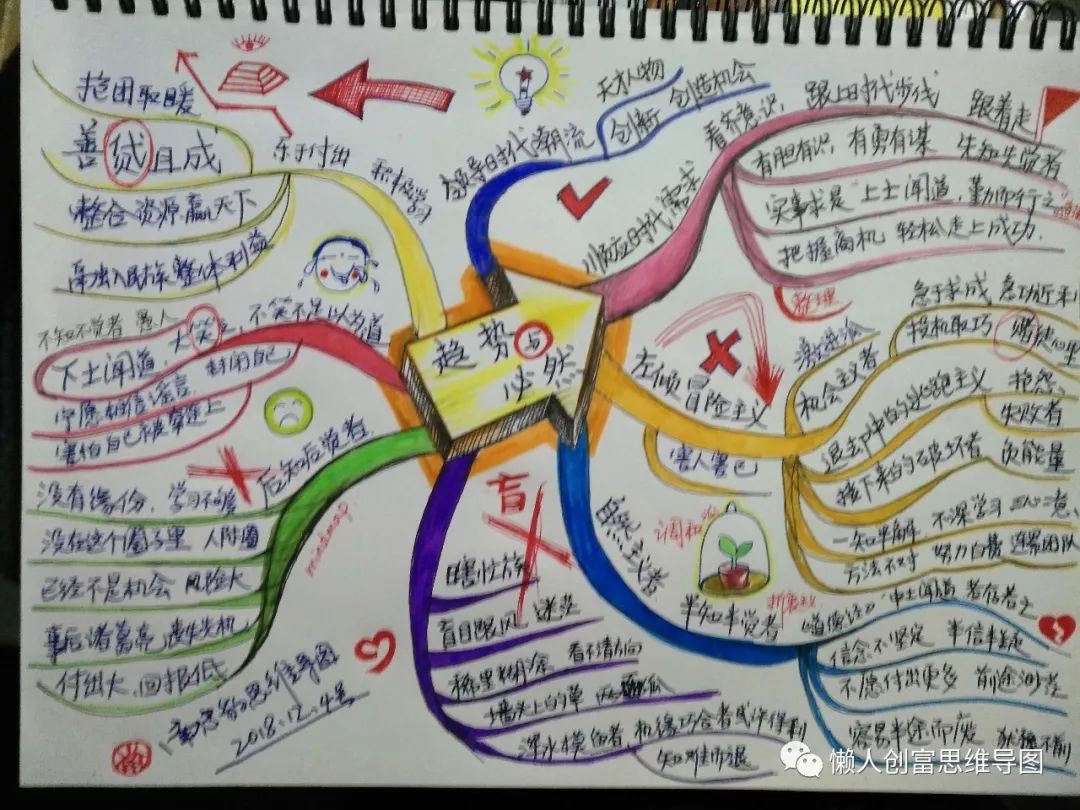 趋势与必然
领导时代潮流
天才人物
创新 创造机会
顺应时代需求
看齐意识, 跟上时代步伐
跟着走
有胆有识, 有勇有谋 先知先觉者
实事求是 "上士闻道, 勤而行之
把握商机 轻松走上成功.
左倾冒险主义
害人害己
激进派
机会主义者
急于求成 急功近利
投机取巧 赌徒心里
退却中的逃跑主义 抱怨
失败者
接下来的破坏者 负能量
一知半解 不深学习 三心二意
方法不对 努力白费 连累团队
自然主义者
调和派
半知半觉者
《道德经》"中士闻道 若存若亡
信念不坚定 半信半疑
不愿付出更多 前途渺茫
容易半途而废 犹豫不前
盲
瞎忙族
盲目跟风 迷茫
稀里糊涂 看不清方向
墙头上的草
深水摸鱼者 机缘巧合者或许得利
知难而退
后知后觉者
没有缘份, 学习不够
没在这个圈子里 人附圈
已经不是机会 风险大
事后诸葛亮 丧失先机
付出大, 回报低
mindmap
不笑不足以为道
不知不觉者 愚人
下士闻道, 大笑之
封闭自己
宁愿相信谣言
害怕自己被牵连上
积极学习
乐于付出
抱团取暖
善贷且成
整合资源赢天下
突出民族整体利益
思维导图
2018.12.4号
懒人创富思维导图